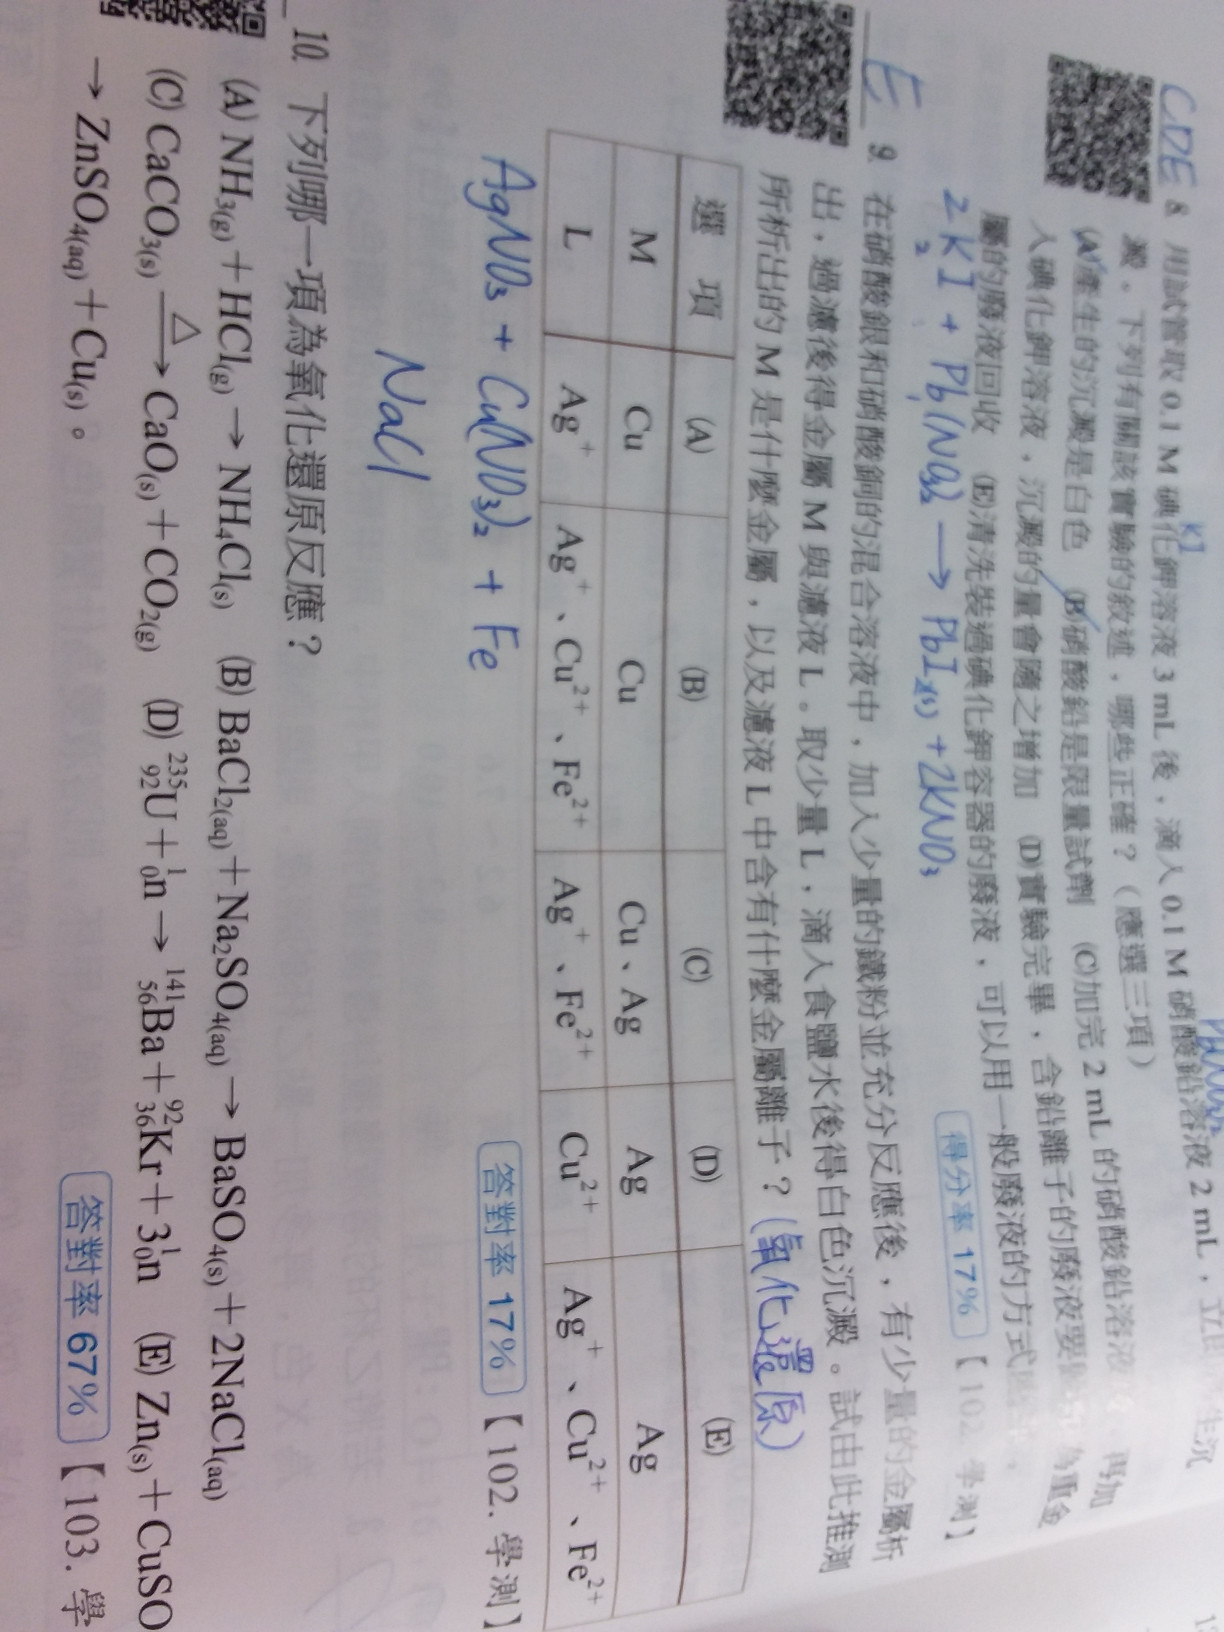 CDE 8. 用試管取 0.1 M 碘化鉀溶液 3 mL 後，滴入 0.1 M 硝酸鉛溶液 2 mL，立
KI
生沉
澱。下列有關該實驗的敘述，哪些正確？（應選三項）
(A)產生的沉澱是白色 (B)硝酸鉛是限量試劑 (C)加完 2 mL 的硝酸鉛溶液 再加
入碘化鉀溶液，沉澱的量會隨之增加 (D)實驗完畢，含鉛離子的廢液要 為重金
屬的廢液回收 (E)清洗裝過碘化鉀容器的廢液，可以用一般廢液的方式
得分率 17% 【102. 學測】
2KI + Pb(NO₃)₂ → PbI₂(s) + 2KNO₃
E 9. 在硝酸銀和硝酸銅的混合溶液中，加入少量的鐵粉並充分反應後，有少量的金屬析
出，過濾後得金屬 M 與濾液 L。取少量 L，滴入食鹽水後得白色沉澱。試由此推測
所析出的 M 是什麼金屬，以及濾液 L 中含有什麼金屬離子？(氧化還原)
選項 (A) (B) (C) (D) (E)
M Cu Cu Cu、Ag Ag Ag
L Ag⁺ Ag⁺、Cu²⁺、Fe²⁺ Ag⁺、Fe²⁺ Cu²⁺ Ag⁺、Cu²⁺、Fe²⁺
答對率 17% 【102. 學測】
AgNO₃ + Cu(NO₃)₂ + Fe
NaCl
10. 下列哪一項為氧化還原反應？
(A) NH₃(g) + HCl(g) → NH₄Cl(s) (B) BaCl₂(aq) + Na₂SO₄(aq) → BaSO₄(s) + 2NaCl(aq)
(C) CaCO₃(s) △→ CaO(s) + CO₂(g) (D) ²³⁵₉₂U + ¹₀n → ¹⁴¹₅₆Ba + ⁹²₃₆Kr + 3¹₀n (E) Zn(s) + CuSO
→ ZnSO₄(aq) + Cu(s)。
答對率 67% 【103. 學